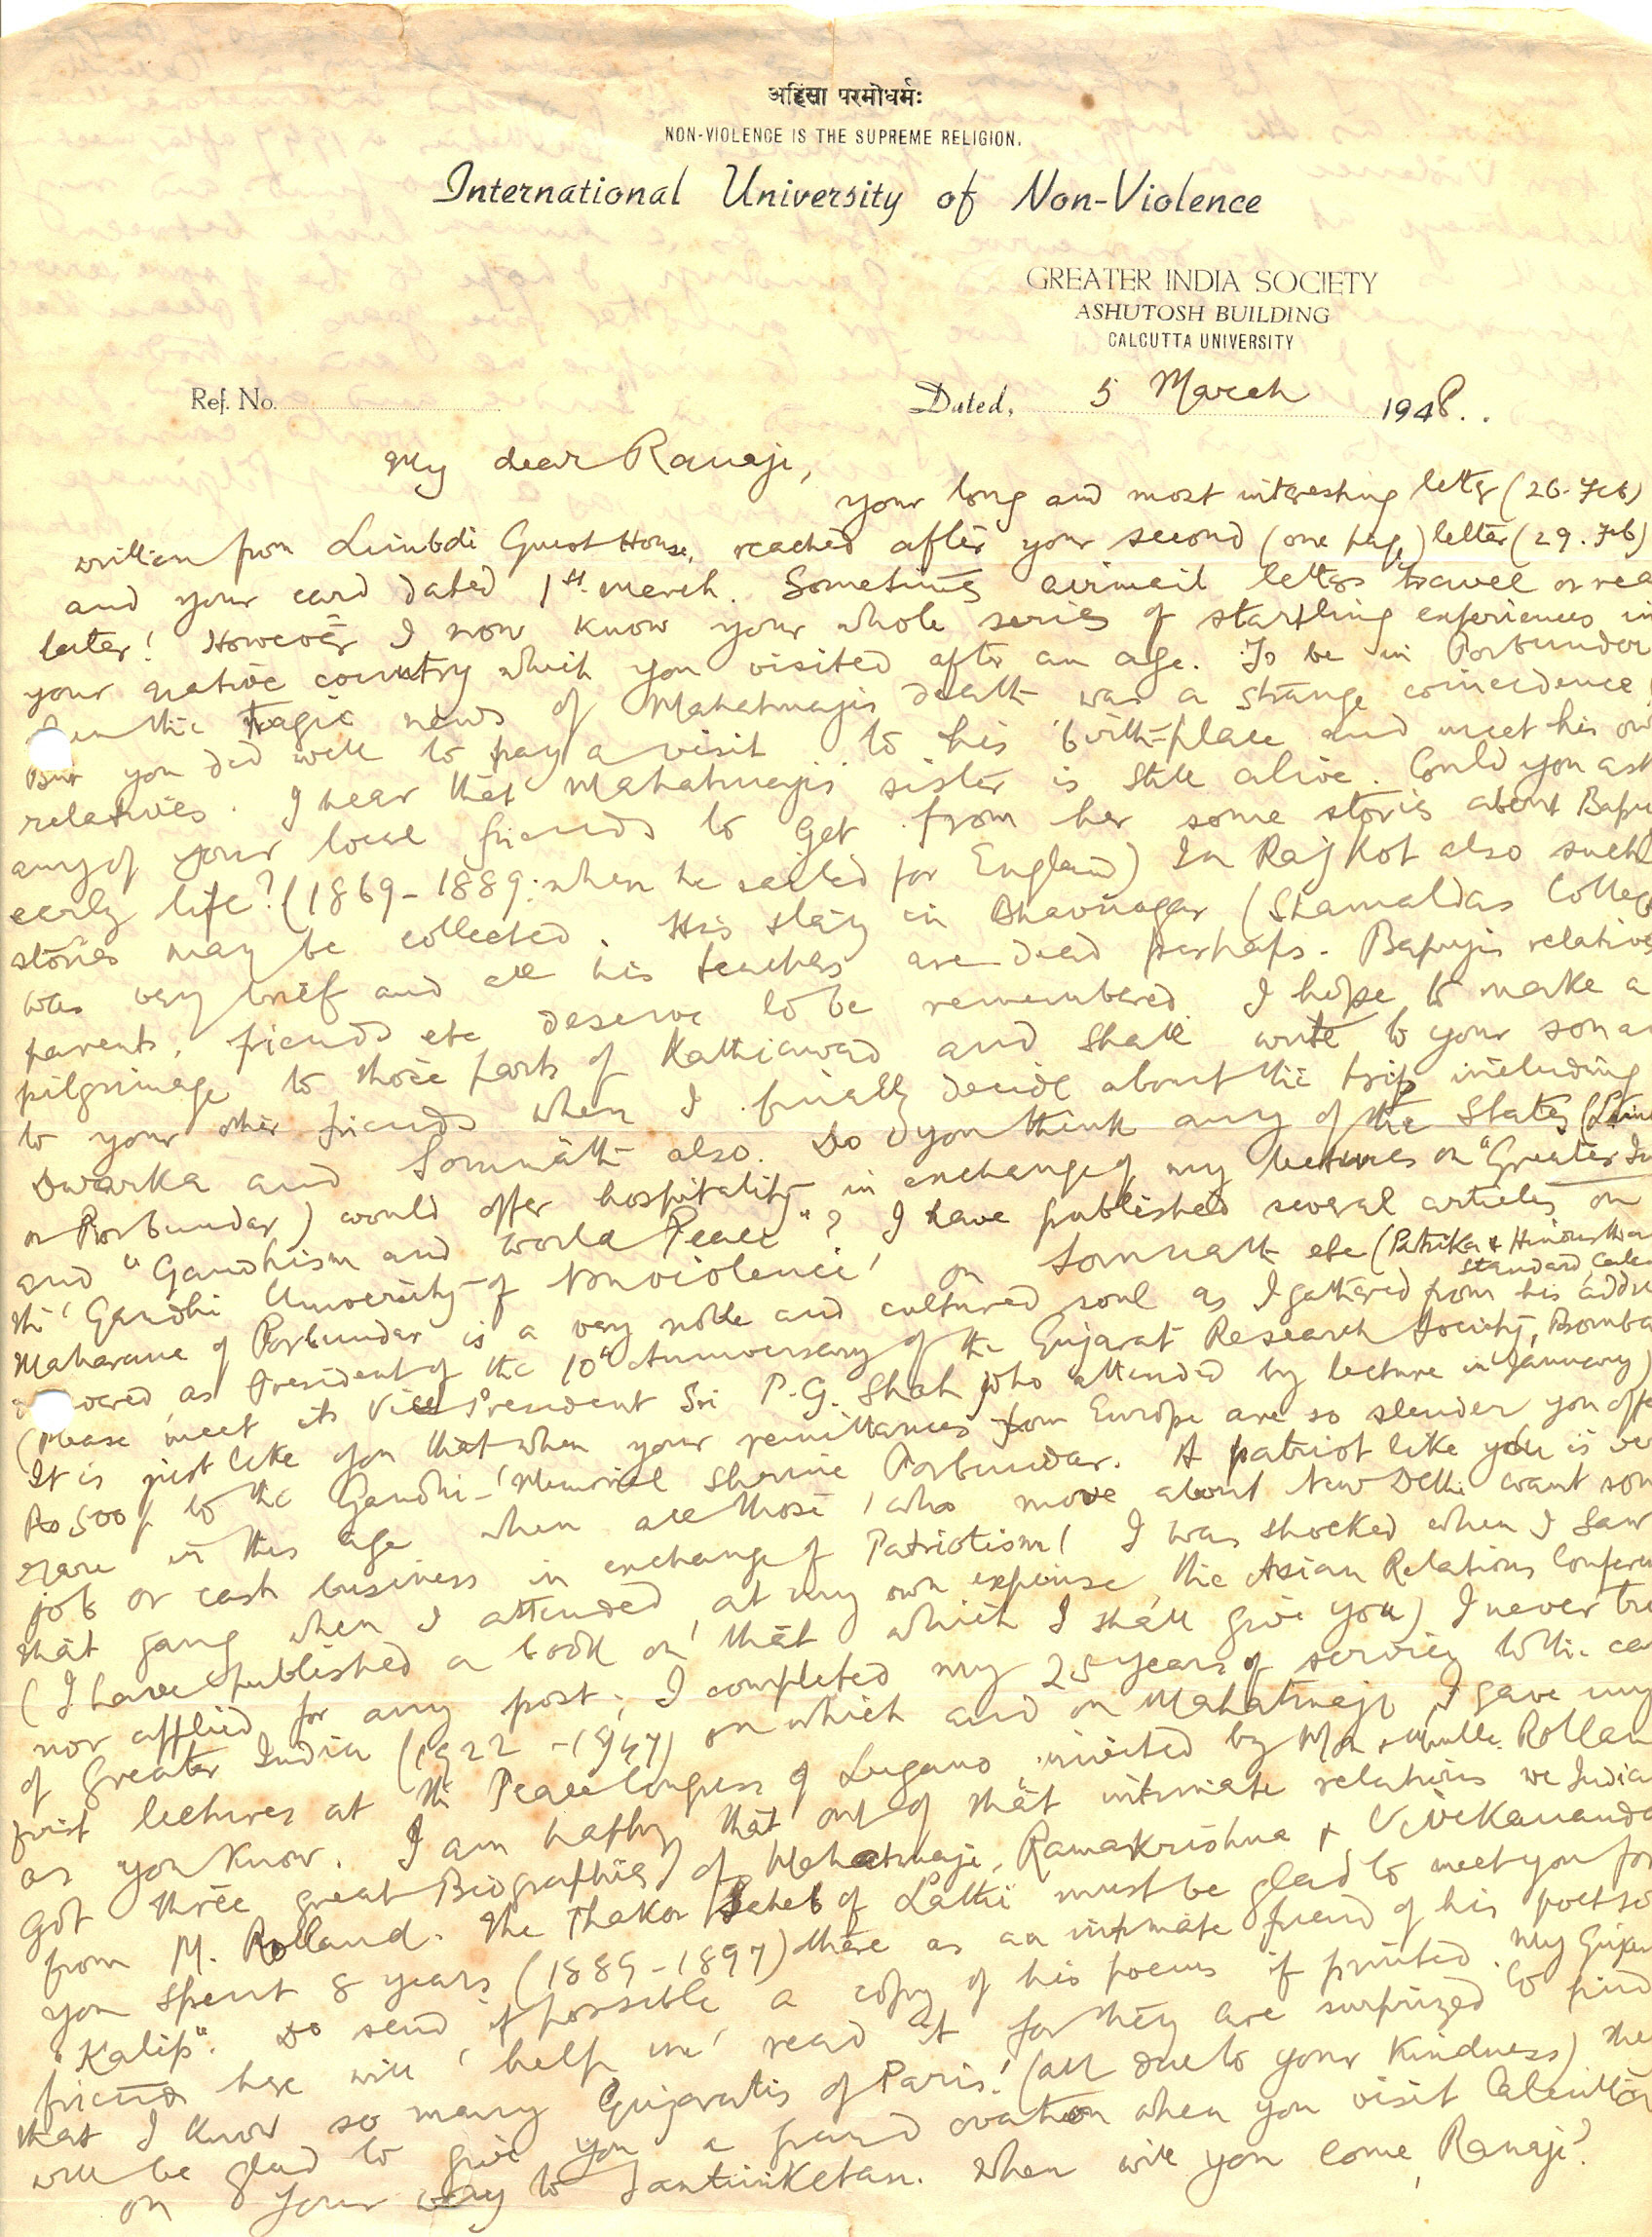 अहिंसा परमोधर्मः
NON-VIOLENCE IS THE SUPREME RELIGION.
International University of Non-Violence
GREATER INDIA SOCIETY
ASHUTOSH BUILDING
CALCUTTA UNIVERSITY
Ref. No.
Dated, 5 March 1948.
My dear Ranaji,
your long and most interesting letter (26. Feb)
written from Limbdi Guest House, reached after your second (one page) letter (29. Feb)
and your card dated 1st march. Sometimes airmail letters travel or rea
later! However I now know your whole series of startling experiences in
your native country which you visited after an age. To be in Porbunder
the Tragic news of Mahatmajis death was a strange coincidence!
But you did well to pay a visit to his birth-place and meet his ow
relatives. I hear that Mahatmajis sister is still alive. Could you ask
any of your local friends to get from her some stories about Bapu
early life? (1869-1889: when he sailed for England) In Rajkot also such
stories may be collected. His stay in Bhavnagar (Shamaldas Colleg
was very brief and all his teachers are dead perhaps. Bapujis relative
parents, friends etc deserve to be remembered. I hope to make a
pilgrimage to those parts of Kathiawad and shall write to your son an
to your other friends when I finally decide about the trip including
Dwarka and Somnath also. Do you think any of the States (Lim
or Porbundar) would offer hospitality in exchange of my lectures on "Greater In
and "Gandhism and World Peace"? I have published several articles on
the 'Gandhi University of Nonviolence' on Somnath etc (Patrika & Hindustha
Standard, Calcu
Maharana of Porbundar is a very noble and cultured soul as I gathered from his addre
as President of the 10th Anniversary of the Gujarat Research Society, Bomba
(Please meet its Vice President Sri P.G. Shah who attended my lecture in January)
It is just like you that when your remittances from Europe are so slender you offe
Rs 500/ to the Gandhi-Memorial Shrine Porbundar. A patriot like you is ve
rare in this age when all those who move about New Delhi want som
job or cash business in exchange of Patriotism! I was shocked when I saw
that gang when I attended, at my own expense, the Asian Relations Confere
(I have published a book on that which I shall give you) I never tri
nor applied for any post. I completed my 25 years of service to the ca
of Greater India (1922-1947) on which and on Mahatmaji, I gave my
first lectures at the Peace Congress of Lugano invited by Mr & Mmlle. Rollan
as you know. I am happy that out of that intimate relations we India
got three great Biographies of Mahatmaji, Ramakrishna & Vivekananda
from M. Rolland. The Thakor Saheb of Lathi must be glad to meet you for
you spent 8 years (1889-1897) there as an intimate friend of his poet so
"Kalip". Do send if possible a copy of his poems if printed. My Gujar
friends here will help me read it for they are surprized to find
that I know so many Gujaratis of Paris! (all due to your kindness) The
will be glad to give you a grand ovation when you visit Calcutta
on your way to Santiniketan. When will you come, Ranaji?